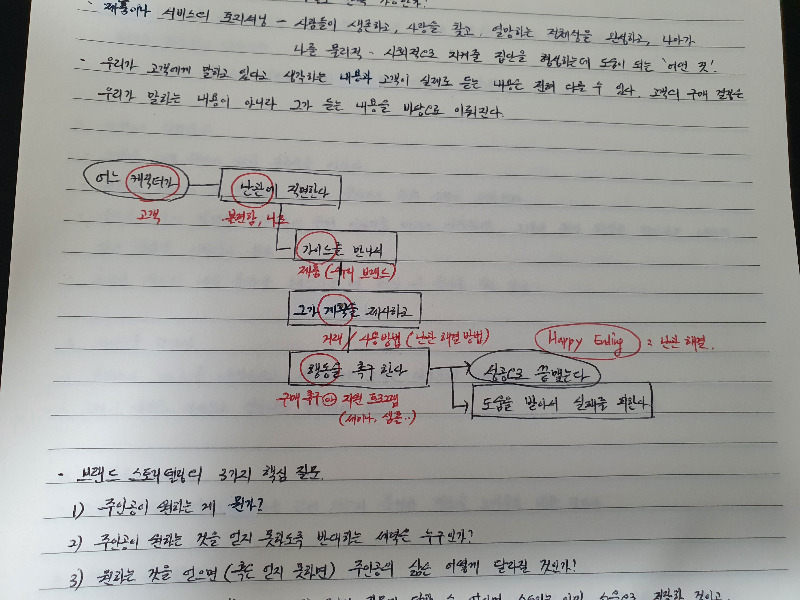 · 제품이나 서비스의 포지셔닝 - 사람들이 생존하고, 사랑을 찾고, 열망하는 정체성을 완성하고, 나아가
나를 물리적·사회적으로 지켜줄 집단을 형성하는데 도움이 되는 '어떤 것'.
· 우리가 고객에게 말하고 있다고 생각하는 내용과 고객이 실제로 듣는 내용은 전혀 다를 수 있다. 고객의 구매 결정은
우리가 말하는 내용이 아니라 그가 듣는 내용을 바탕으로 이뤄진다.
어느 캐릭터가
난관에 직면한다
고객
불편함, 니즈
가이드를 만나서
제품 (우리 브랜드)
그가 계획을 제시하고
거래 / 사용방법 (난관 해결 방법)
Happy Ending : 난관 해결.
행동을 촉구한다
성공으로 끝맺는다
구매 촉구 지원 프로그램
(세미나, 샘플..)
도움을 받아서 실패를 피한다
· 브랜드 스토리텔링의 3가지 핵심 질문
1) 주인공이 원하는 게 뭔가?
2) 주인공이 원하는 것을 얻지 못하도록 반대하는 세력은 누구인가?
3) 원하는 것을 얻으면 (혹은 얻지 못하면) 주인공의 삶은 어떻게 달라질 것인가?